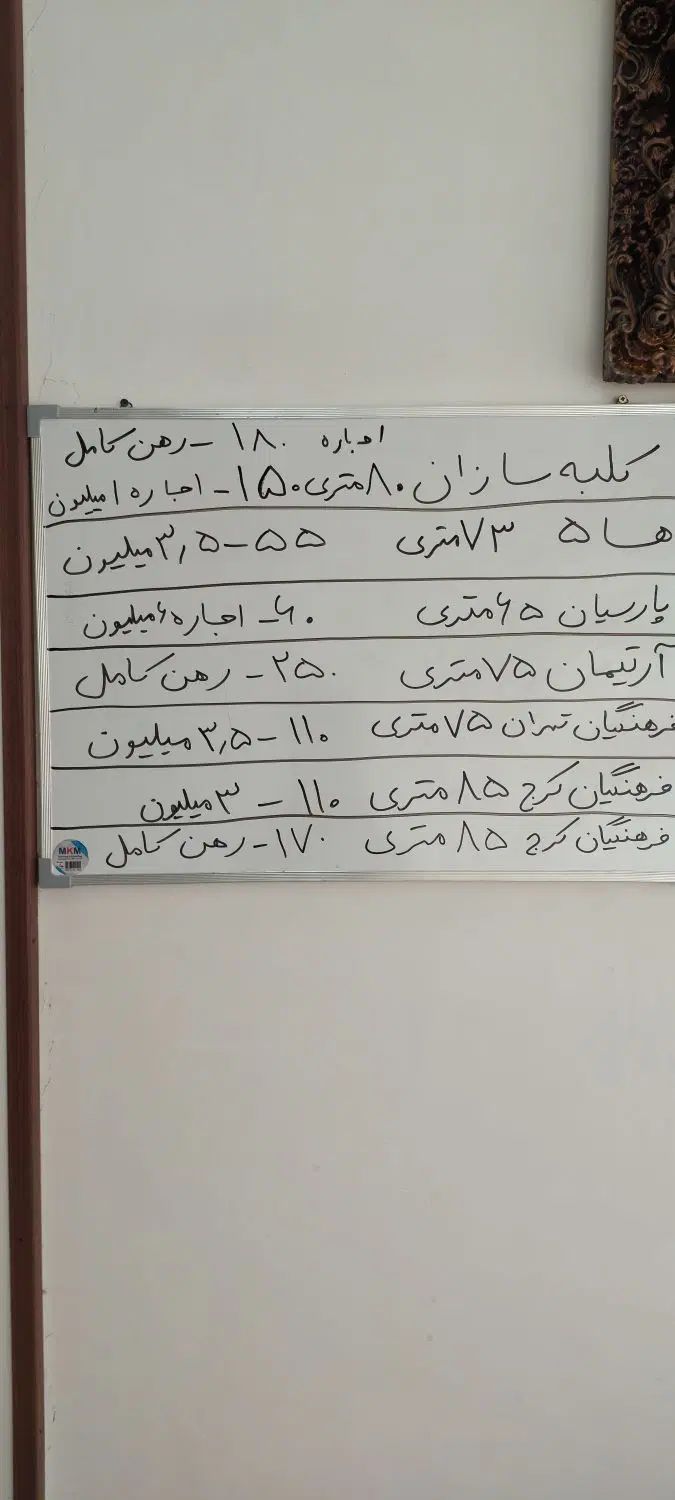 اجاره ۱۸۰ - رهن کامل
کلبه سازان ۸۰ متری ۱۵۰ - اجاره ۱ میلیون
هسا ۵ ۷۳ متری ۵۵ - ۳٫۵ میلیون
پارسیان ۶۵ متری ۶۰ - اجاره ۶ میلیون
آرتیمان ۷۵ متری ۲۵۰ - رهن کامل
فرهنگیان تهران ۷۵ متری ۱۱۰ - ۳٫۵ میلیون
فرهنگیان کرج ۸۵ متری ۱۱۰ - ۳ میلیون
فرهنگیان کرج ۸۵ متری ۱۷۰ - رهن کامل
MKM